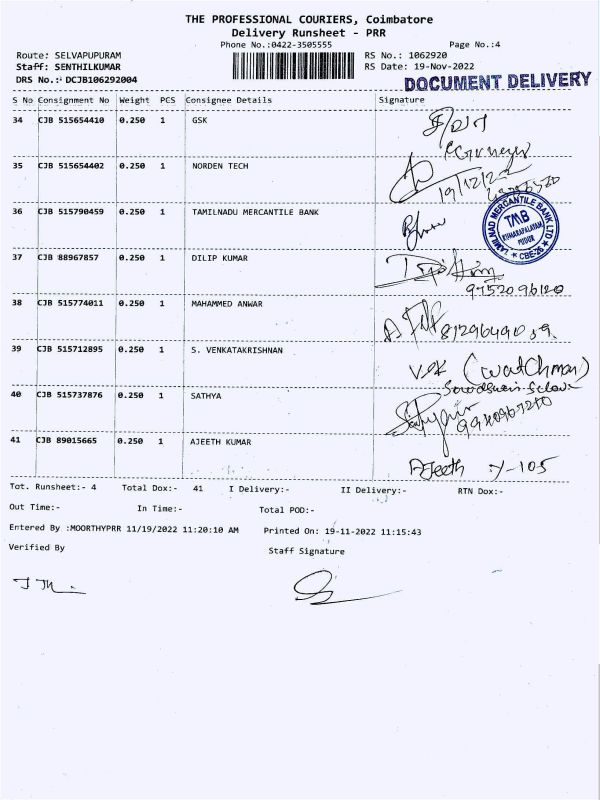 THE PROFESSIONAL COURIERS, Coimbatore
Delivery Runsheet - PRR
Phone No.:0422-3505555 Page No.:4
Route: SELVAPUPURAM RS No.: 1062920
Staff: SENTHILKUMAR RS Date: 19-Nov-2022
DRS No.: DCJB106292004
DOCUMENT DELIVERY
S No Consignment No Weight PCS Consignee Details Signature
34 CJB 515654410 0.250 1 GSK
35 CJB 515654402 0.250 1 NORDEN TECH
36 CJB 515790459 0.250 1 TAMILNADU MERCANTILE BANK
TAMILNAD MERCANTILE BANK LTD
TMB
KUMARAPALAYAM
PUDUR
* CBE-26 *
37 CJB 88967857 0.250 1 DILIP KUMAR
9752096120
38 CJB 515774011 0.250 1 MAHAMMED ANWAR
39 CJB 515712895 0.250 1 S. VENKATAKRISHNAN
(watchman)
40 CJB 515737876 0.250 1 SATHYA
41 CJB 89015665 0.250 1 AJEETH KUMAR
AJeeth Y-105
Tot. Runsheet:- 4 Total Dox:- 41 I Delivery:- II Delivery:- RTN Dox:-
Out Time:- In Time:- Total POD:-
Entered By :MOORTHYPRR 11/19/2022 11:20:10 AM Printed On: 19-11-2022 11:15:43
Verified By Staff Signature